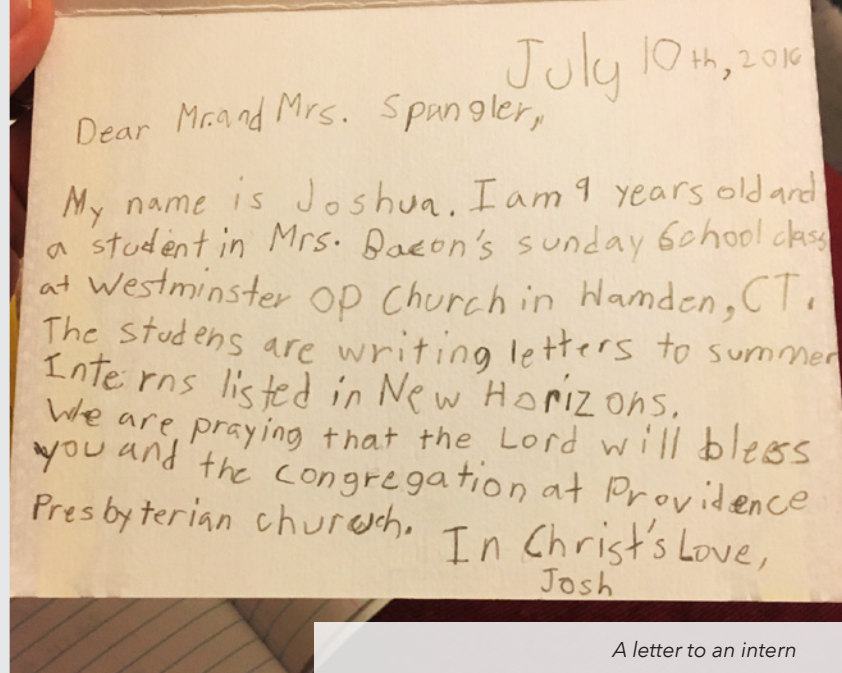 July 10th, 2016
Dear Mr. and Mrs. Spangler,
My name is Joshua. I am 9 years old and
a student in Mrs. Bacon's sunday School class
at Westminster OP Church in Hamden, CT.
The studens are writing letters to summer
Interns listed in New Horizons.
We are praying that the Lord will bless
you and the congregation at Providence
Presbyterian church.
In Christ's Love,
Josh
A letter to an intern